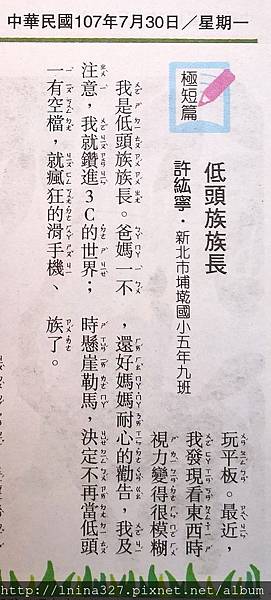 中華民國107年7月30日／星期一
極短篇
低頭族族長
許紘寧‧新北市埔墘國小五年九班
我是低頭族族長。爸媽一不
注意，我就鑽進3C的世界；
一有空檔，就瘋狂的滑手機、
玩平板。最近，
我發現看東西時
視力變得很模糊
，還好媽媽耐心的勸告，我及
時懸崖勒馬，決定不再當低頭
族了。
http://lnina327.pixnet.net/album